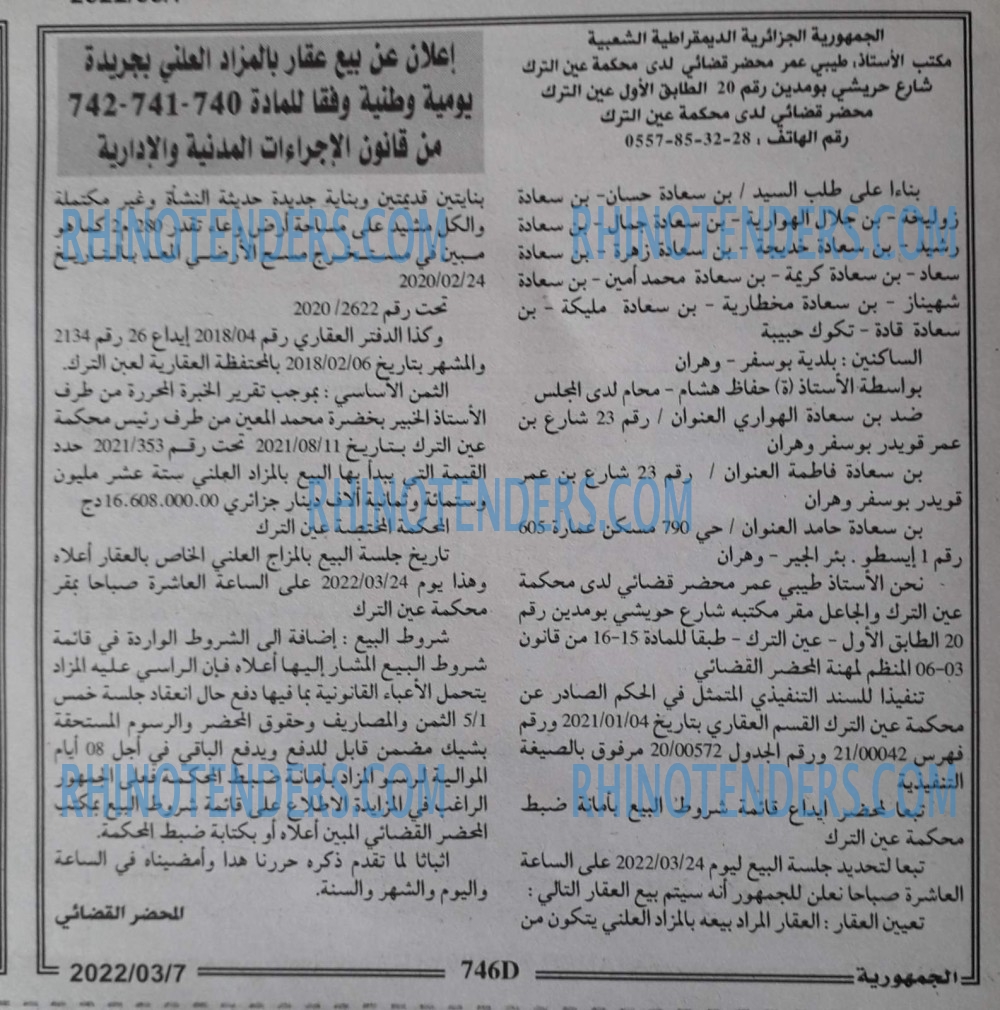 الجمهورية الجزائرية الديمقراطية الشعبية
مكتب الأستاذ: طيبي عمر محضر قضائي لدى محكمة عين الترك
شارع حريشي بومدين رقم 20 الطابق الأول عين الترك
محضر قضائي لدى محكمة عين الترك
رقم الهاتف : 28-32-85-0557
بناءا على طلب السيد / بن سعادة حسان- بن سعادة
زوليخة - بن جلال الهوارية - بن سعادة جمال - بن سعادة
رشيد - بن سعادة خديجة - بن سعادة زهرة - بن سعادة
سعاد - بن سعادة كريمة - بن سعادة محمد أمين - بن سعادة
شهيناز - بن سعادة مخطارية - بن سعادة مليكة - بن
سعادة قادة - تكوك حبيبة
الساكنين : بلدية بوسفر - وهران
بواسطة الأستاذ (ة) حفاظ هشام - محام لدى المجلس
ضد بن سعادة الهواري العنوان / رقم 23 شارع بن
عمر قويدر بوسفر وهران
بن سعادة فاطمة العنوان / رقم 23 شارع بن عمر
قويدر بوسفر وهران
بن سعادة حامد العنوان / حي 790 مسكن عمارة 605
رقم 1 إيسطو . بئر الجير - وهران
نحن الأستاذ طيبي عمر محضر قضائي لدى محكمة
عين الترك والجاعل مقر مكتبه شارع حويشي بومدين رقم
20 الطابق الأول - عين الترك - طبقا للمادة 15-16 من قانون
03-06 المنظم لمهنة المحضر القضائي
تنفيذا للسند التنفيذي المتمثل في الحكم الصادر عن
محكمة عين الترك القسم العقاري بتاريخ 2021/01/04 ورقم
فهرس 21/00042 ورقم الجدول 20/00572 مرفوق بالصيغة
التنفيذية
تبعا لمحضر ايداع قائمة شروط البيع بأمانة ضبط
محكمة عين الترك
تبعا لتحديد جلسة البيع ليوم 2022/03/24 على الساعة
العاشرة صباحا نعلن للجمهور أنه سيتم بيع العقار التالي :
تعيين العقار : العقار المراد بيعه بالمزاد العلني يتكون من
إعلان عن بيع عقار بالمزاد العلني بجريدة
يومية وطنية وفقا للمادة 740-741-742
من قانون الإجراءات المدنية والإدارية
بنايتين قديمتين وبناية جديدة حديثة النشأة وغير مكتملة
والكل مشيد على مساحة أرض وعاء تقدر 280 م2 كما هو
مبين في مستخرج مسح الأرضي المعد بالتاريخ
2020/02/24
تحت رقم 2622/ 2020
وكذا الدفتر العقاري رقم 2018/04 إيداع 26 رقم 2134
والمشهر بتاريخ 2018/02/06 بالمحتفظة العقارية لعين الترك.
الثمن الأساسي : بموجب تقرير الخبرة المحررة من طرف
الأستاذ الخبير بخضرة محمد المعين من طرف رئيس محكمة
عين الترك بتاريخ 2021/08/11 تحت رقم 2021/353 حدد
القيمة التي يبدأ بها البيع بالمزاد العلني ستة عشر مليون
وستمائة وثمانية ألاف دينار جزائري 16.608.000.00دج
المحكمة المختصة عين الترك
تاريخ جلسة البيع بالمزاج العلني الخاص بالعقار أعلاه
وهذا يوم 2022/03/24 على الساعة العاشرة صباحا بمقر
محكمة عين الترك
شروط البيع : إضافة الى الشروط الواردة في قائمة
شروط البيع المشار إليها أعلاه فإن الراسي عليه المزاد
يتحمل الأعباء القانونية بما فيها دفع حال انعقاد جلسة خمس
5/1 الثمن والمصاريف وحقوق المحضر والرسوم المستحقة
بشيك مضمن قابل للدفع ويدفع الباقي في أجل 08 أيام
الموالية لرسو المزاد بأمانة ضبط المحكمة فعلى الجمهور
الراغب في المزايدة الاطلاع على قائمة شروط البيع بمكتب
المحضر القضائي المبين أعلاه أو بكتابة ضبط المحكمة.
اثباتا لما تقدم ذكره حررنا هدا وأمضيناه في الساعة
واليوم والشهر والسنة.
المحضر القضائي
الجمهورية
746D
2022/03/7
RHINOTENDERS.COM
RHINOTENDERS.COM
RHINOTENDERS.COM
RHINOTENDERS.COM
RHINOTENDERS.COM